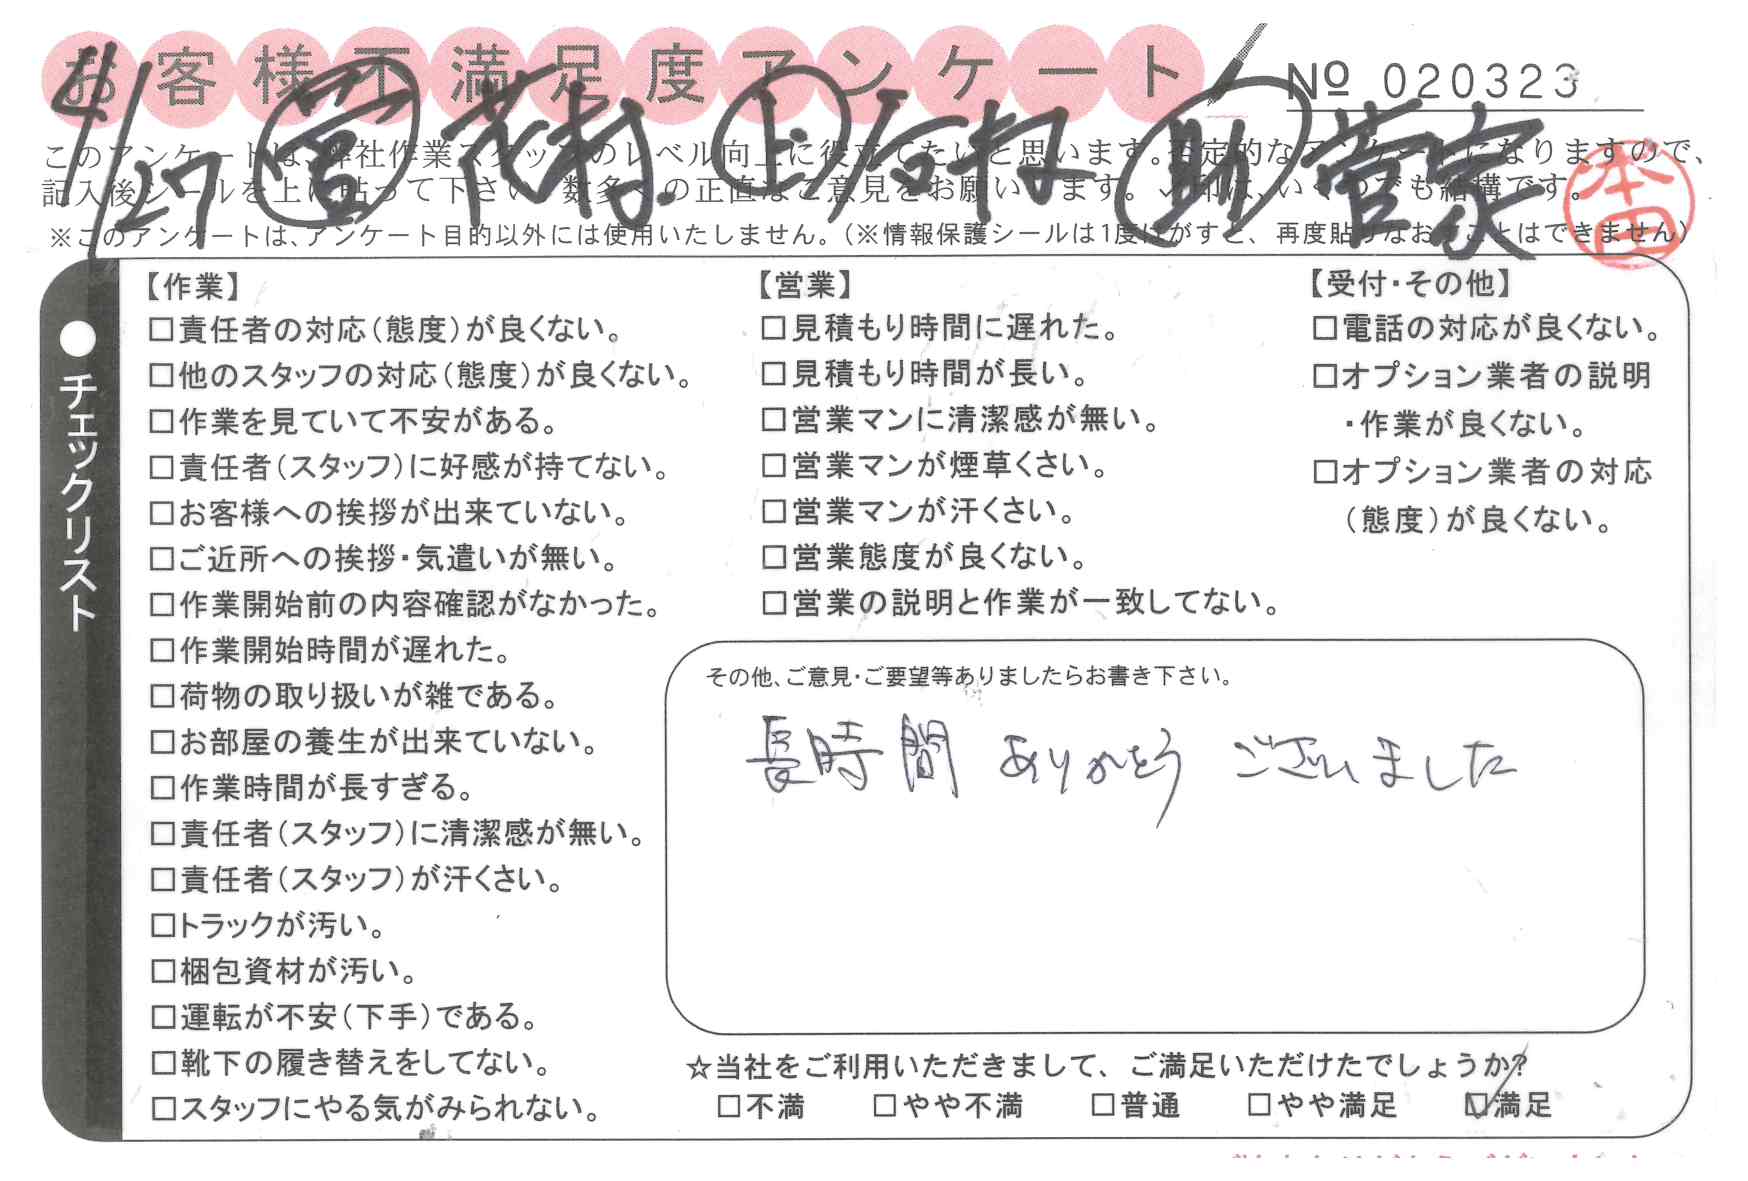 お客様不満足度アンケート
№ 020323
4/27 営 花村 上 岡村 助 菅家
このアンケートは、弊社作業スタッフのレベル向上に役立てたいと思います。否定的なアンケートになりますので、
記入後シールを上に貼って下さい。数多くの正直なご意見をお願いします。✓印は、いくつでも結構です。
※このアンケートは、アンケート目的以外には使用いたしません。(※情報保護シールは1度はがすと、再度貼りなおすことはできません)
本田
●チェックリスト
【作業】
□責任者の対応(態度)が良くない。
□他のスタッフの対応(態度)が良くない。
□作業を見ていて不安がある。
□責任者(スタッフ)に好感が持てない。
□お客様への挨拶が出来ていない。
□ご近所への挨拶・気遣いが無い。
□作業開始前の内容確認がなかった。
□作業開始時間が遅れた。
□荷物の取り扱いが雑である。
□お部屋の養生が出来ていない。
□作業時間が長すぎる。
□責任者(スタッフ)に清潔感が無い。
□責任者(スタッフ)が汗くさい。
□トラックが汚い。
□梱包資材が汚い。
□運転が不安(下手)である。
□靴下の履き替えをしてない。
□スタッフにやる気がみられない。
【営業】
□見積もり時間に遅れた。
□見積もり時間が長い。
□営業マンに清潔感が無い。
□営業マンが煙草くさい。
□営業マンが汗くさい。
□営業態度が良くない。
□営業の説明と作業が一致してない。
【受付・その他】
□電話の対応が良くない。
□オプション業者の説明
・作業が良くない。
□オプション業者の対応
(態度)が良くない。
その他、ご意見・ご要望等ありましたらお書き下さい。
長時間 ありがとう ございました
☆当社をご利用いただきまして、ご満足いただけたでしょうか?
□不満 □やや不満 □普通 □やや満足 ☑満足